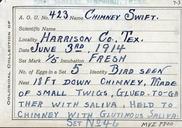 A. O. U. No. 423 Name Chimney Swift.
Scientific Name
Locality Harrison Co. Tex.
Date June 3rd, 1914
Set Mark 1/5 Incubation Fresh
No. of Eggs in Set 5 Identity Bird seen
Nest in 18 ft down chimney, made
of small twigs, glued-together
with saliva, held to
chimney with glutinous saliva
Set No 246
MVZ